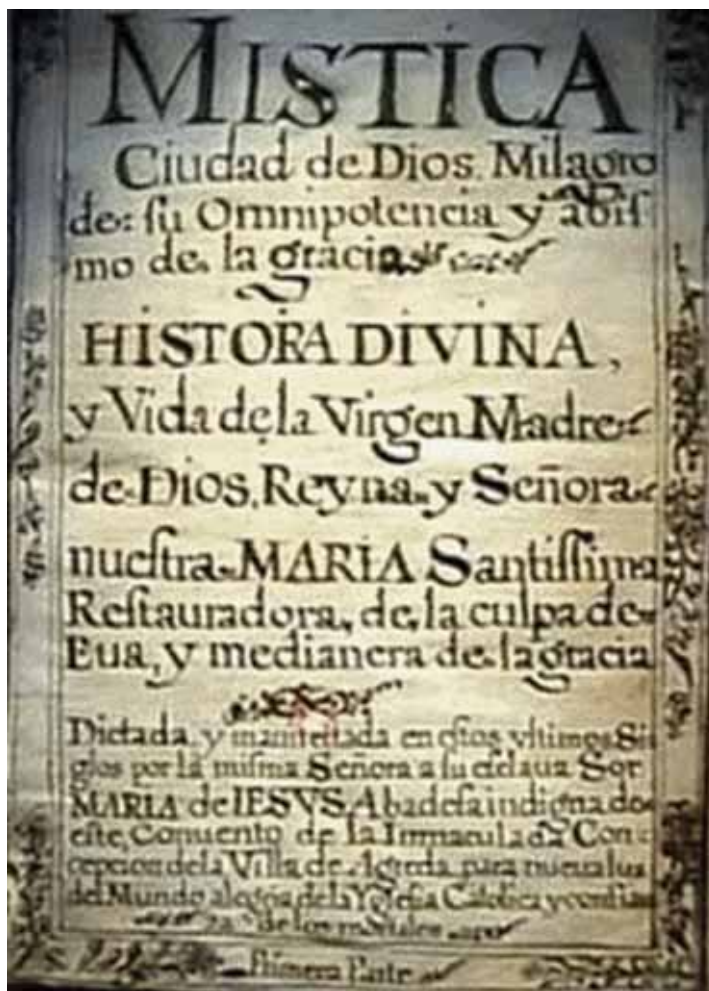 MISTICA
Ciudad de Dios. Milagro
de su Omnipotencia y abiſ
mo de la gracia
HISTORA DIVINA,
y Vida de la Virgen Madre
de Dios, Reyna y Señora
nueſtra MARIA Santiſſima
Reſtauradora, de la culpa de
Eua, y medianera de la gracia
Dictada, y manifeſtada en eſtos vltimos Si
glos por la miſma Señora a ſu eſclaua Sor
MARIA de IESVS, Abadeſa indigna de
eſte Conuento de la Immaculada Con
cepcion de la Villa de Agreda, para nueua luz
del Mundo alegria de la Ygleſia Catolica y confian
za de los mortales
Primera Parte